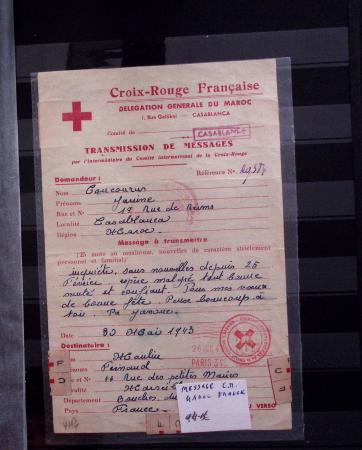 Croix-Rouge Française
DELEGATION GENERALE DU MAROC
1, Rue Galliéni - CASABLANCA
Comité de CASABLANCA
TRANSMISSION DE MESSAGES
par l'intermédiaire du Comité international de la Croix-Rouge
Demandeur : Référence N°
Nom
Prénoms
Rue et N° 17 Rue de Reims
Localité Casablanca
Région Maroc
Message à transmettre
(25 mots au maximum, nouvelles de caractère strictement
personnel et familial)
inquiète, sans nouvelles depuis 25
espère malgré tout bonne
santé et confiant. Tous mes voeux
de bonne fête. Pense beaucoup à
toi.
Date 30 Mai 1943
Destinataire :
PARIS
Nom
Prénoms
Rue et N° Rue des petites Maries
Localité Marseille
Département Bouches du
Pays France
VERSO
MESSAGE C.R.
MAROC FRANCE